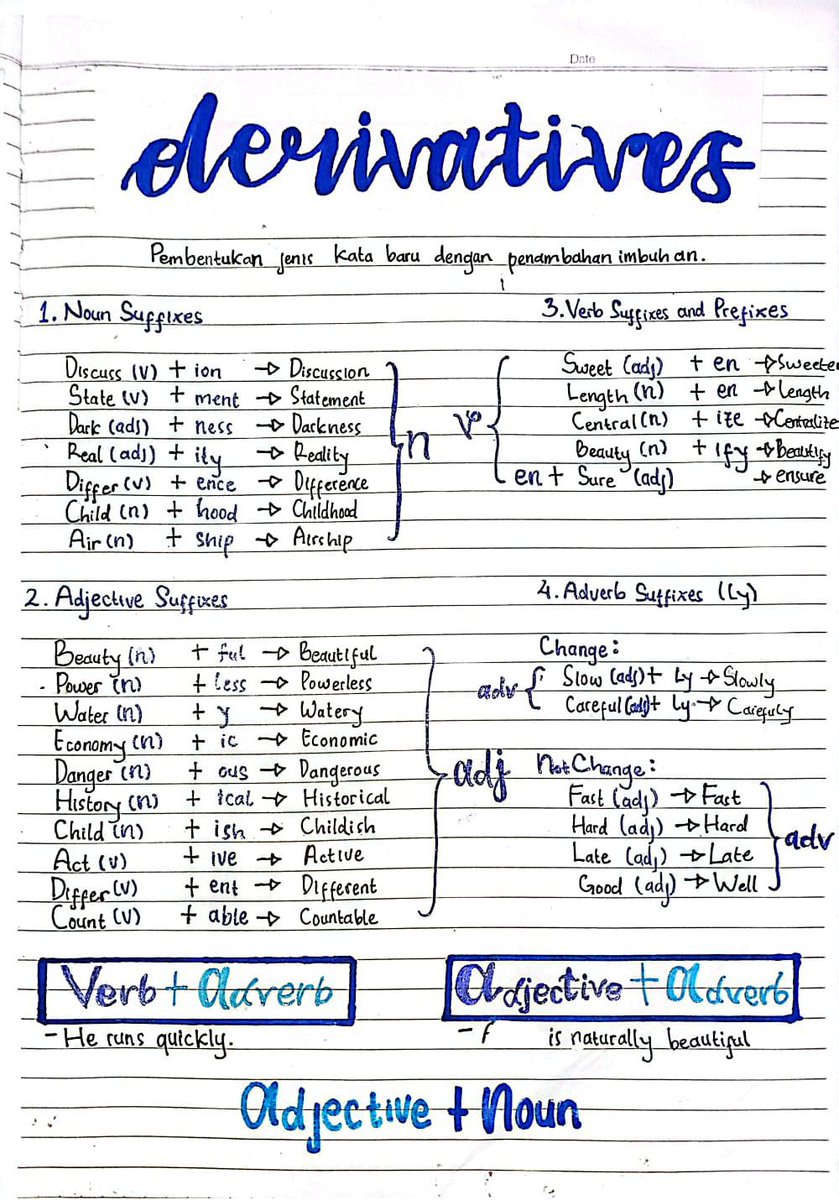 Date
derivatives
Pembentukan jenis kata baru dengan penambahan imbuhan.
1. Noun Suffixes
Discuss (v) + ion → Discussion
State (v) + ment → Statement
Dark (adj) + ness → Darkness
Real (adj) + ity → Reality
Differ (v) + ence → Difference
Child (n) + hood → Childhood
Air (n) + ship → Airship
n
3. Verb Suffixes and Prefixes
v
Sweet (adj) + en → Sweete
Length (n) + en → Length
Central (n) + ize → Centralize
Beauty (n) + ify → Beautify
en + Sure (adj) → ensure
2. Adjective Suffixes
Beauty (n) + ful → Beautiful
Power (n) + less → Powerless
Water (n) + y → Watery
Economy (n) + ic → Economic
Danger (n) + ous → Dangerous
History (n) + ical → Historical
Child (n) + ish → Childish
Act (v) + ive → Active
Differ (v) + ent → Different
Count (v) + able → Countable
adj
4. Adverb Suffixes (Ly)
Change:
adv
Slow (adj) + Ly → Slowly
Careful (adj) + Ly → Carefuly
Not Change:
Fast (adj) → Fast
Hard (adj) → Hard
Late (adj) → Late
Good (adj) → Well
adv
Verb + adverb
- He runs quickly.
adjective + adverb
- is naturally beautiful
adjective + noun